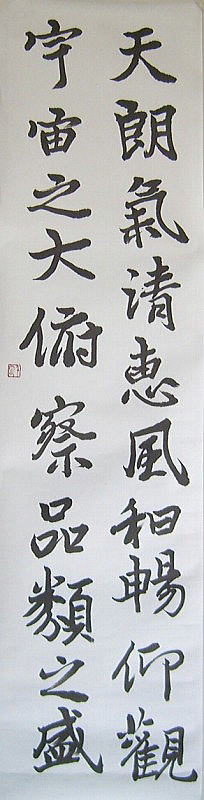 天朗氣清惠風和暢仰觀
宇宙之大俯察品類之盛